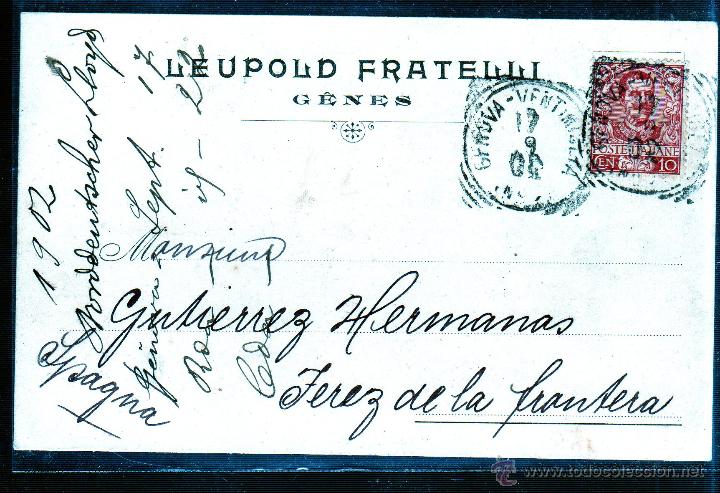 LEUPOLD FRATELLI
GÊNES
GENOVA-VENTIMIGLIA
17
9
02
POSTE ITALIANE
CEN 10
Gutierrez Hermanas
Jerez de la frontera
Spagna
1902
Norddeutscher Lloyd
Genova Sept. 17
www.todocoleccion.net